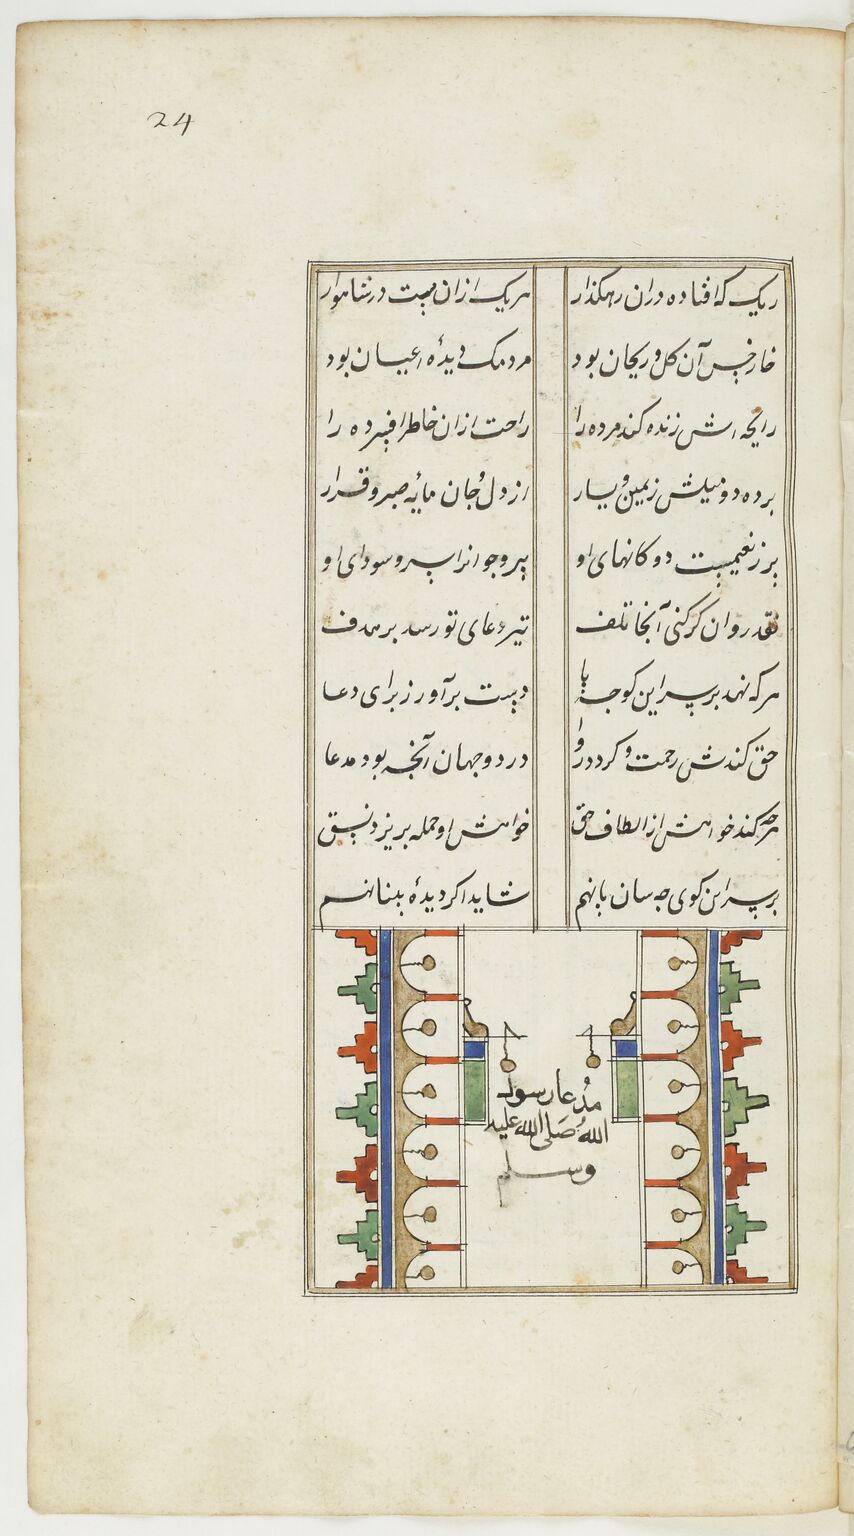 24
ریک که افتاده دران رهکذار هریک ازان هست در شاهوار
خار و خس آن کل و ریحان بود مردمک دیدهٔ اعیان بود
رایحه اش زنده کند مرده را راحت ازان خاطر افسرده را
برده دو میلش زیمین و یسار از دل و جان مایه صبر و قرار
پر ز نعیمست دوکانهای او پیر و جوانرا سر و سودای او
نقد روان کر کنی آنجا تلف تیر دعای تو رسد بر هدف
هر که نهد بر سر این کوچه پا دست برآورز برای دعا
حق کندش رحمت و کردد روا در دو جهان آنچه بود مدعا
هر چه کند خواهش از الطاف حق خواهش او جمله بریزد نسق
بر سر این کوی چه سان پا نهم شاید اکر دیدهٔ بینا نهم
مدعا رسول
الله صلی الله علیه
وسلم